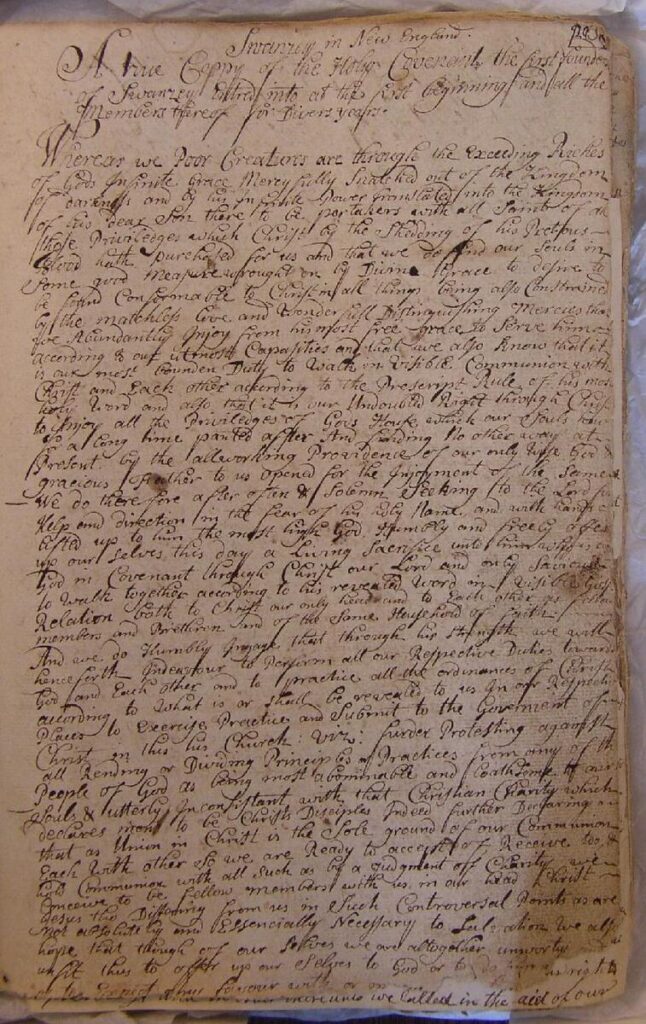 Swanzey in New England.
A true Coppy of the Holy Covenant the first Founders
of Swanzey Entred into at the first beginning and all the
Members thereof for Divers years.
Whereas we Poor Creatures are through the Exceeding Riches
of Gods Infinite Grace Mercyfully Snatched out of the Kingdom
of darkness and by his Infinite Power translated into the Kingdom
of his dear Son there to be partakers with all Saints of all
those Priviledges which Christ by the Shedding of his Pretious
Blood hath purchased for us and that we do find our Souls in
Some good Measure wrought on by Divine Grace to desire to
be found Conformable to Christ in all things being also Constrained
by the matchless love and Wonderfull Distinguishing Mercies that
we Abundantly Injoy from his most free Grace to Serve him
according to our utmost Capasities and that we also Know that it
is our most bounden Duty to Walk in Visible Communion with
Christ and Each other according to the Prescript Rule of his most
holy Word and also that it is our Undoubted Right through Christ
to Injoy all the Priviledges of Gods House which our Souls have
for a long time panted after And finding No other way at
Present by the alleworking Providence of our only Wise God &
gracious Father to us Opened for the Injoyment of the Same
We do therefore after often & Solemn Seeking to the Lord for
Help and direction in the fear of his holy Name, and with hands
lifted up to him the most high God Humbly and freely offer
up our Selves this day a Living Sacrifice unto him who is our
God in Covenant through Christ our Lord and only Saviour
to Walk together according to his revealed Word in Visible Gospel
Relation both to Christ our only head and to Each other as fellow
members and Brethren and of the Same Household of faith
And we do Humbly Ingage that through his Strength we will
henceforth Indeavour to Perform all our Respective Duties towards
God and Each other and to practice all the ordinances of Christ
according to What is or Shall be revealed to us In our Respective
Places to Exercise Practice and Submit to the Government of
Christ in this his Church: Viz: furder Protesting against
all Rending or Dividing Principles or Practices from any of the
People of God as being most abominable and loathsome to our
Souls & utterly Inconsistant with that Christian Charity which
declares men to be Christs Disciples Indeed further Declaring
that as Union in Christ is the Sole ground of our Communion
Each With other So we are Ready to accept of Receive too &
hold Communion with all Such as by a Judgment of Charity we
Conceive to be fellow members with us in our head Christ
Jesus tho Differing from us in Such Controversal Points as are
Not absolutely and Essencially Necessary to Salvation We also
hope that though of our Selves we are altogether unworthy and
unfit thus to offer up our Selves to God or to do
or to Expect favour with or we Called in the aid of our